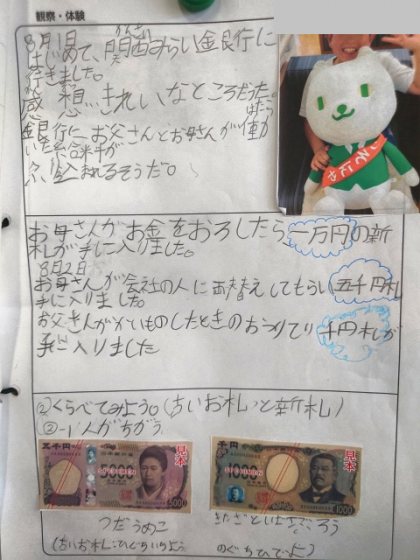 観察・体験
8月1日
はじめて、関西みらい金銀行に
行きました。
感想…きれいなところだった。
銀行に、お父さんとお母さんが働
いた給料が
ふりこまれるそうだ。
お母さんがお金をおろしたら一万円の新
札が手に入りました。
8月2日
お母さんが会社の人に両替えしてもらい五千円札
手に入りました。
お父さんがかいものしたときのおつりで千円札が
手に入りました
②くらべてみよう。(古いお札と新札)
②-1 人がちがう
五千円
見本
SPECIMEN
5000
千円
見本
SPECIMEN
1000
つだうめこ
(古いお札:ひぐちいちよう
きたざとしばさぶろう
のぐちひでよ)